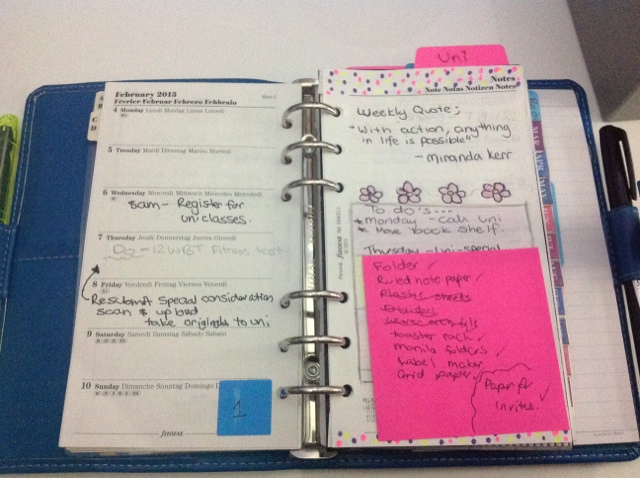 Uni
February 2013
Février Februar Febrero Febbraio
4 Monday Lundi Montag Lunes Lunedì
5 Tuesday Mardi Dienstag Martes Martedì
6 Wednesday Mercredi Mittwoch Miércoles Mercoledì
8am - Register for
uni classes.
7 Thursday Jeudi Donnerstag Jueves Giovedì
Do - 12WBT Fitness test
8 Friday Vendredi Freitag Viernes Venerdì
Resubmit Special consideration
scan & upload
take originals to uni
9 Saturday Samedi Samstag Sábado Sabato
10 Sunday Dimanche Sonntag Domingo
filofax
1
Notes
Note Notas Notizen Notes
Weekly Quote;
"With action, anything
in life is possible"
- Miranda Kerr
To do's...
* Monday - Call uni
* Move book shelf.
Thursday - Uni - special
Folder ✓
Ruled note paper ✓
Plastic sheets
toaster rack ✓
manila folders ✓
Label maker
Grid paper ✓
Paper for
invites ✓